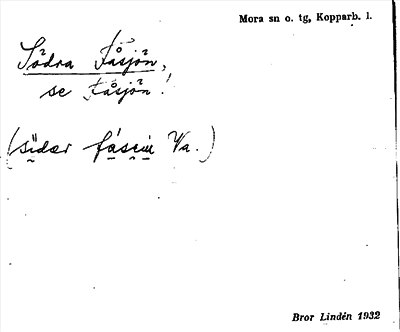 Mora sn o. tg, Kopparb. l.
Södra Fåsjön,
se Fåsjön!
(sïdær fásɛm Va.)
Bror Lindén 1932